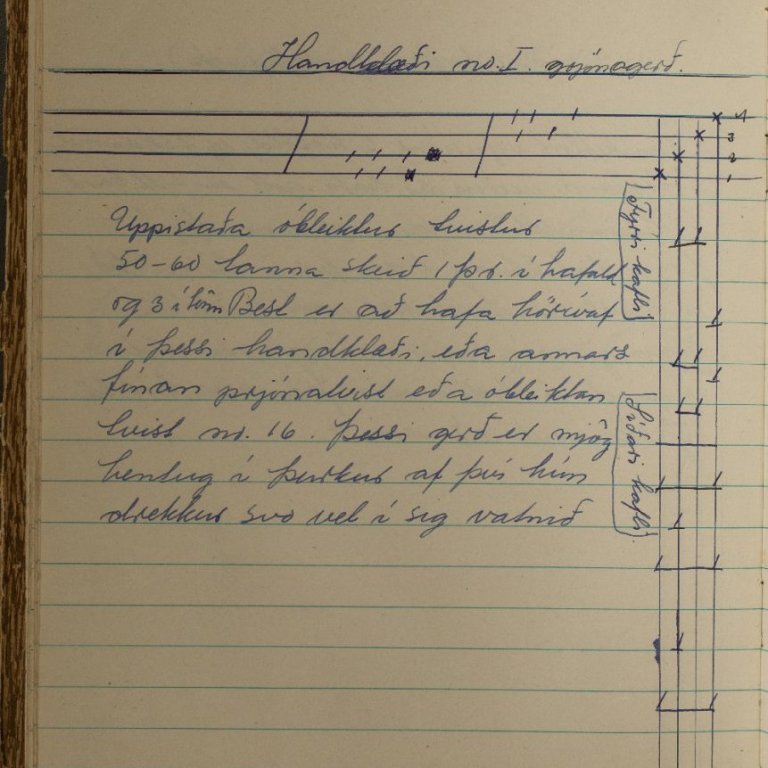 Handklæði no. I. prjónagerð.
4
3
2
1
Uppistaða óbleiktur tvistur
50-60 tanna skeið 1 þr. í hafald
og 3 í tönn Best er að hafa hörívaf
í þessi handklæði, eða annars
fínan prjónatvist eða óbleiktan
tvist no. 16. Þessi gerð er mjög
hentug í þurkur af því hún
drekkur svo vel í sig vatnið
Fyrri kafli
Síðari kafli